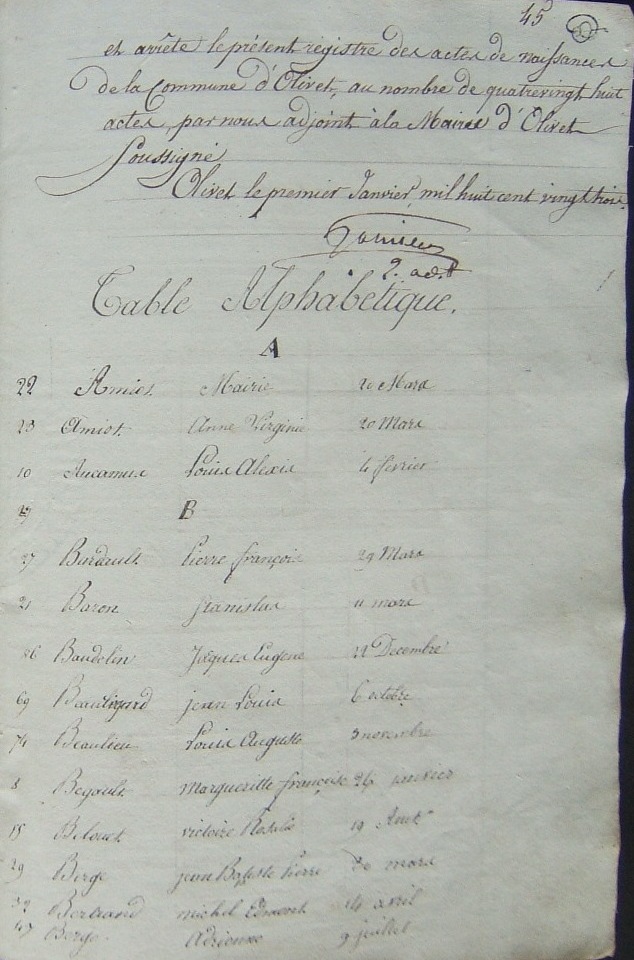 45
et arrête le présent régistre des actes de naissances
de la Commune d'Olivet, au nombre de quatrevingt huit
actes, par nous adjoint à la Mairie d'Olivet
Soussigné
Olivet le premier Janvier, mil huit cent vingt trois.
2. adt
Table Alphabétique.
A
22 Amiot Mairie 20 Mars
23 Amiot Anne Virginie 20 Mars
10 Louis Alexis 4 février
B
27 Burdault Pierre françois 29 Mars
21 Baron Stanislas 11 mars
86 Baudelin Jacques Eugene 22 Decembre
69 jean Louis 6 octobre
74 Beaulieu Louis Auguste 3 novembre
8 Begault Margueritte françoise 26 janvier
Victoire Rosalie 19 Aout
29 Berge jean Baptiste Pierre 30 mars
32 Bertrand michel Edmond 14 avril
47 Berge Adrienne 9 juillet